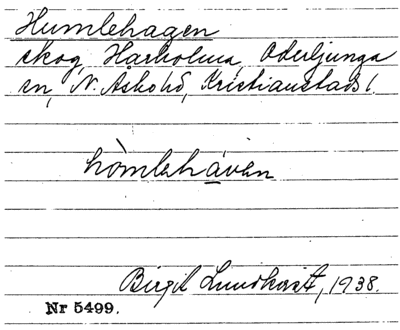 Humlehagen
skog, Harholma, Oderljunga
sn, N. Åsbo hd, Kristianstads l.
hòmlehaven
Birgit Lundkvist, 1938.
Nr 5499.